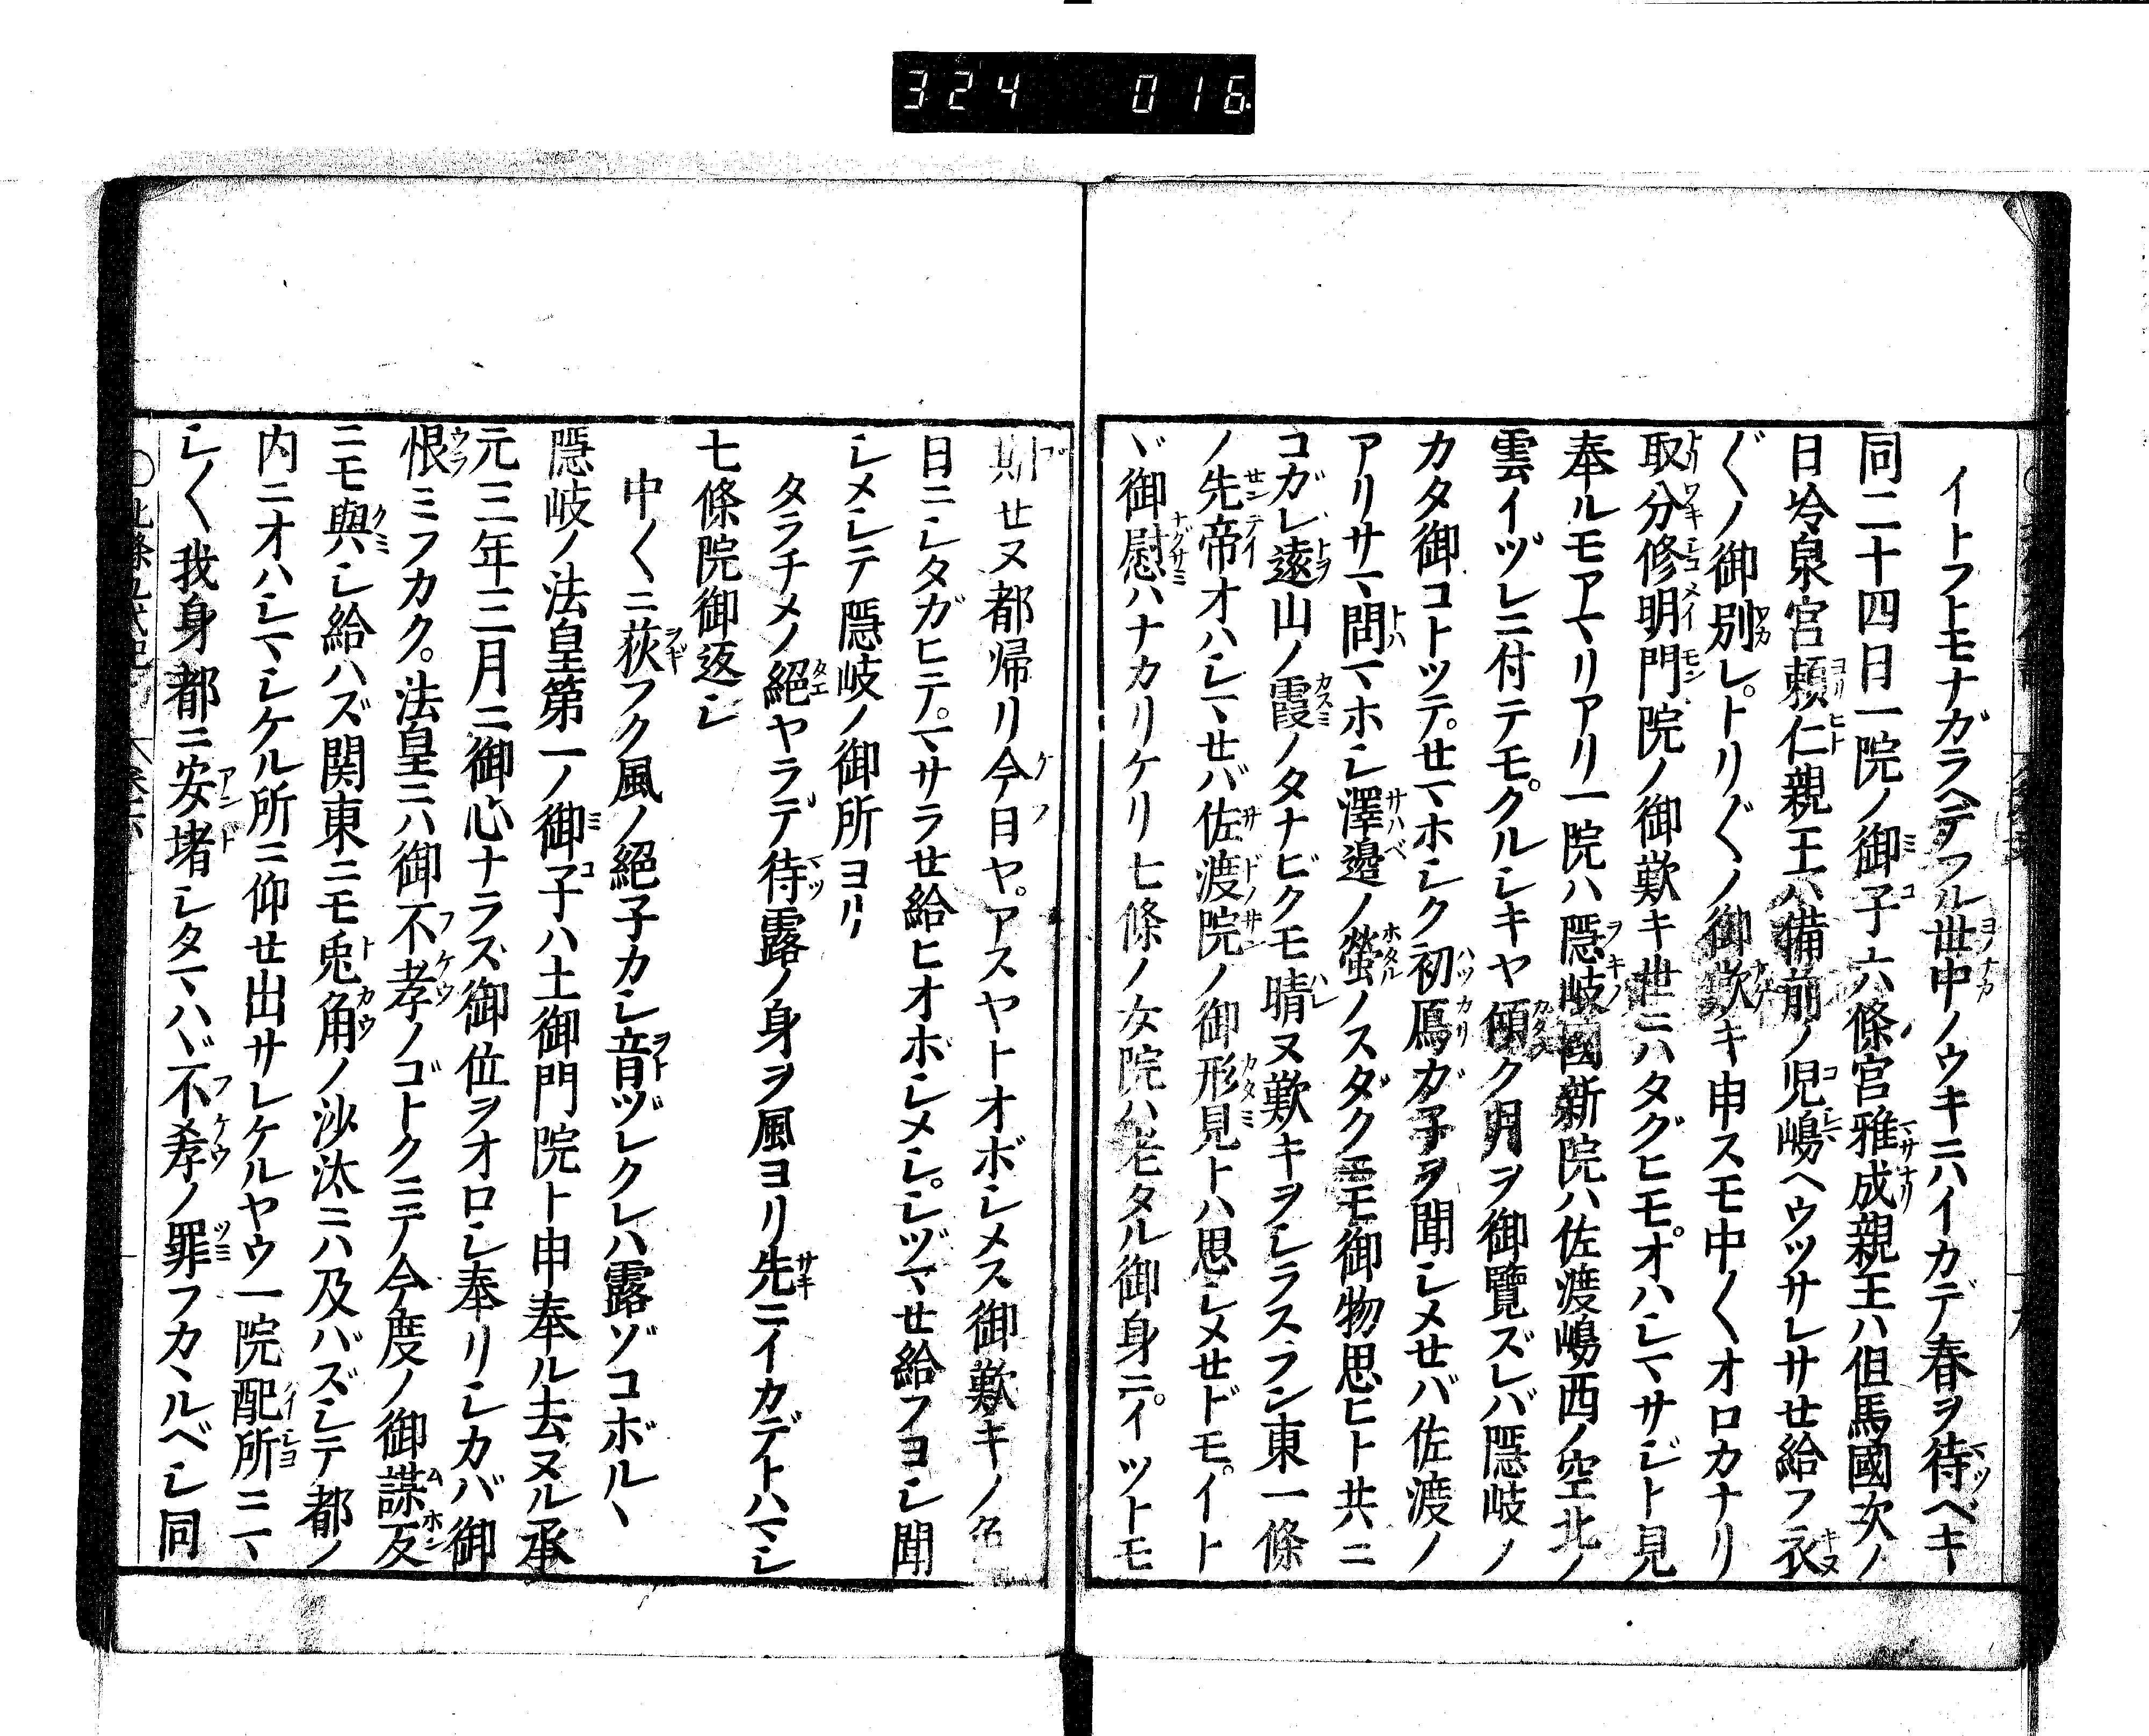 324 016
イトフトモナガラヘテフル世中ノウキニハイカデ春ヲ待ベキ
同二十四日一院ノ御子六條宮雅成親王ハ但馬國次ノ
日冷泉宮頼仁親王ハ備前ノ児嶋ヘウツサレサせ給フ衣
〲ノ御別レ。トリ〲ノ御歎キ申スモ中〱オロカナリ
取分修明門院ノ御歎キ世ニハタグヒモ。オハシマサジト見
奉ルモアマリアリ一院ハ隠岐國新院ハ佐渡嶋西ノ空北ノ
雲イヅレニ付テモ。クルシキヤ傾ク月ヲ御覽ズレバ隠岐ノ
カタ御コトツテ。せマホシク初鳫ガ子ヲ聞シメせバ佐渡ノ
アリサマ問マホシ澤邉ノ螢ノスダクモ御物思ヒト共ニ
コガレ遠山ノ霞ノタナビクモ晴ヌ歎キヲシラスラン東一條
ノ先帝オハシマせバ佐渡院ノ御形見トハ思シメせドモ。イト
ヾ御慰ハナカリケリ七條ノ女院ハ老タル御身ニ。イツトモ
期せヌ都帰リ今日ヤ。アスヤトオボシメス御歎キノ色
日ニシタガヒテ。マサラせ給ヒオボシメシ。シヅマせ給フヨシ聞
シメシテ隠岐ノ御所ヨリ
タラチメノ絕ヤラデ待露ノ身ヲ風ヨリ先ニイカデトハマシ
七條院御返シ
中〱ニ荻フク風ノ絕子カシ音ヅレクレハ露ゾコボルヽ
隠岐ノ法皇第一ノ御子ハ土御門院ト申奉ル去ヌル承
元三年三月ニ御心ナラズ御位ヲオロシ奉リシカバ御
恨ミフカク。法皇ニハ御不孝ノゴトクニテ今度ノ御謀反
ニモ與シ給ハズ関東ニモ兎角ノ沙汰ニハ及バズシテ都ノ
内ニオハシマシケル所ニ仰せ出サレケルヤウ一院配所ニマ
シ〱我身都ニ安堵シタマハヾ不孝ノ罪フカヽルベシ同